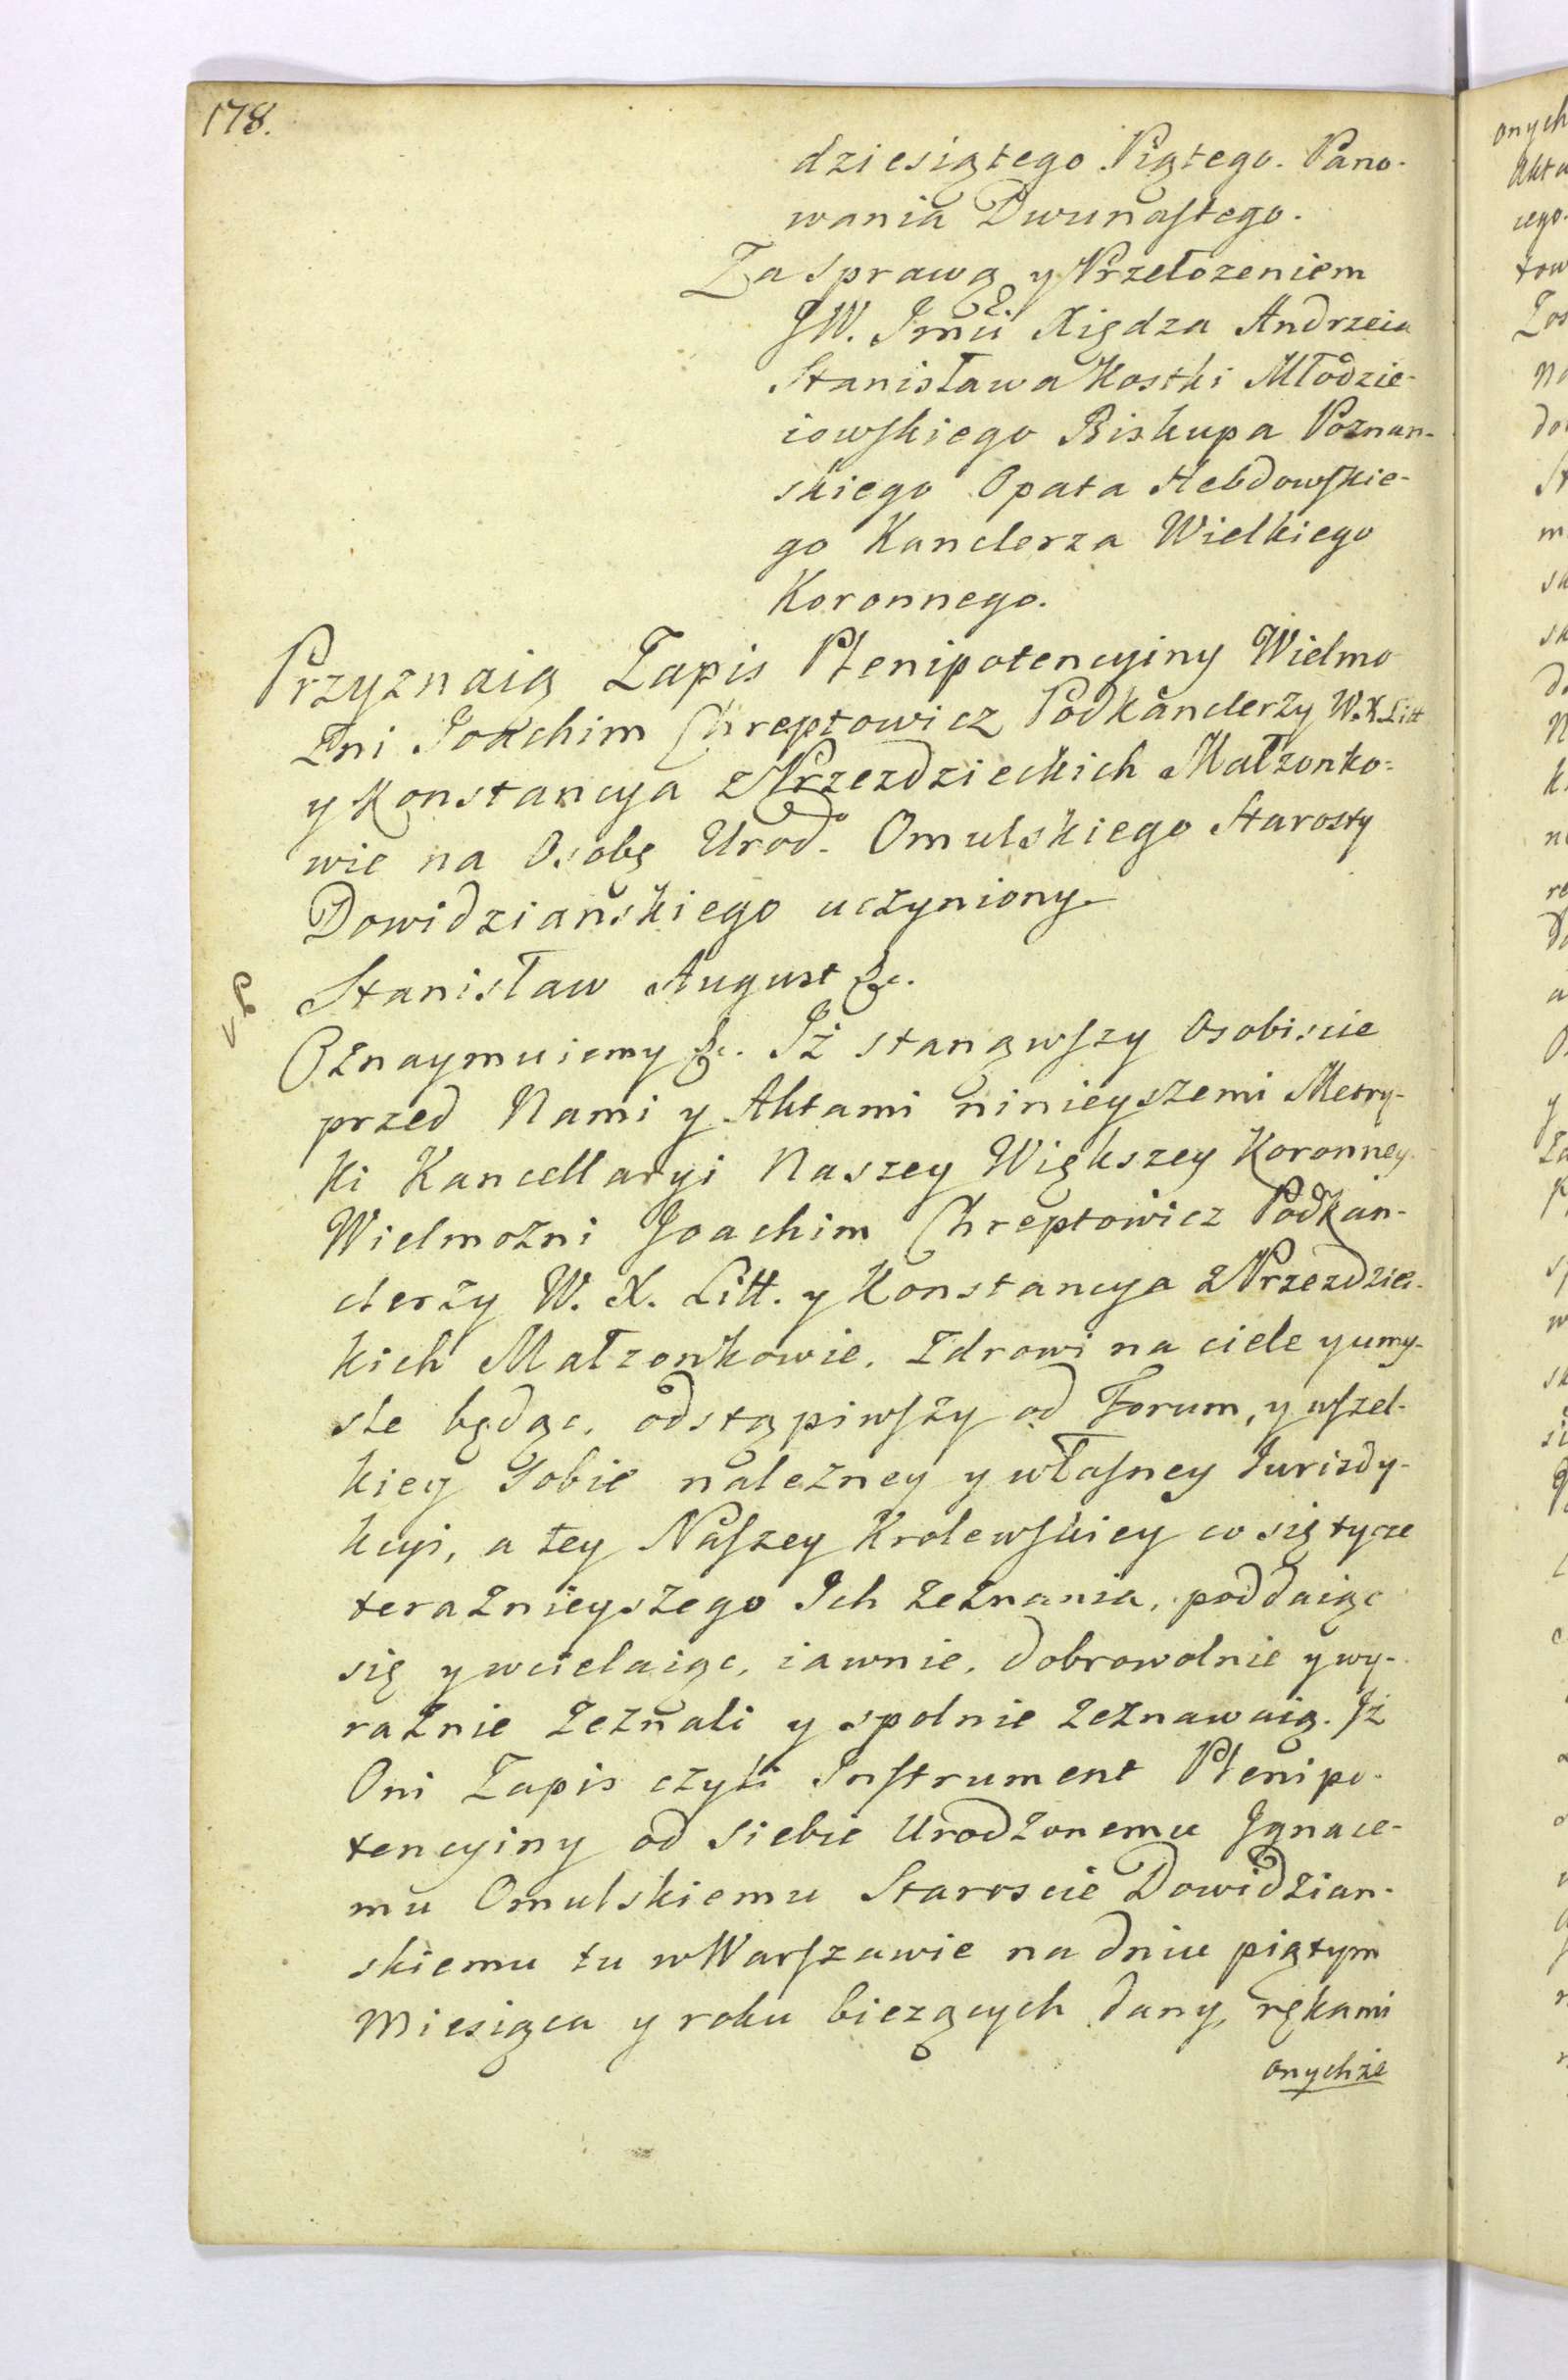 178.
dziesiątego Piątego. Pano-
wania Dwunastego.
Za sprawą y Przełozeniem
JW. Imci Xiędza Andrzeia
Stanisława Kostki Młodzie-
iowskiego Biskupa Poznan-
skiego Opata Hebdowskie-
go Kanclerza Wielkiego
Koronnego.
Przyznaią Zapis Plenipotencyiny Wielmo
żni Joachim Chreptowicz Podkanclerzy W.X.Litt
y Konstancya z Przezdzieckich Małzonko-
wie na Osobę Urod. Omulskiego Starosty
Dowidziańskiego uczyniony
Stanisław August &c.
Oznaymuiemy &c. Iż stanąwszy Osobiscie
przed Nami y Aktami ninieyszemi Metry-
ki Kancellaryi Naszey Większey Koronney
Wielmożni Joachim Chreptowicz Podkan-
clerzy W. X. Litt. y Konstancya z Przezdziec-
kich Małzonkowie, zdrowi na ciele y umy-
sle będąc, odstąpiwszy od Forum, y wszel-
kiey sobie należney y własney Jurisdy-
kcyi, a tey Naszey Krolewskiey co się tycze
teraznieyszego Ich zeznania, poddaiąc
się y wcielaiąc, iawnie, dobrowolnie y wy-
raźnie zeznali y spolnie zeznawaią. Iż
Oni Zapis czyli Instrument Plenipo-
tencyiny od siebie Urodzonemu Ignace-
mu Omulskiemu Staroscie Dowidzian-
skiemu tu w Warszawie na dniu piątym
Miesiąca y roku biezących dany, rękami
onychże